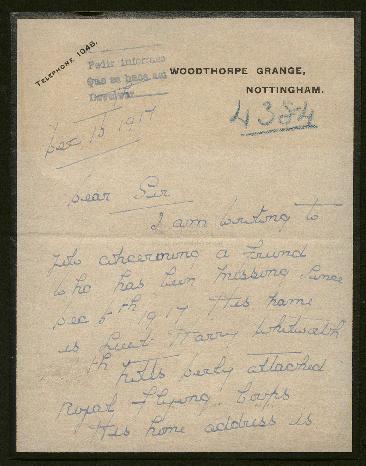 TELEPHONE 1048.
Pedir informes
Que se haga así
Devolver
WOODTHORPE GRANGE,
NOTTINGHAM.
4384
Dec 15 1917
Dear Sir
I am writing to
you concerning a friend
who has been missing since
Dec 5th 1917 His name
is Lieut. Harry Whitworth
th Notts Derby attached
Royal Flying Corps
His home address is